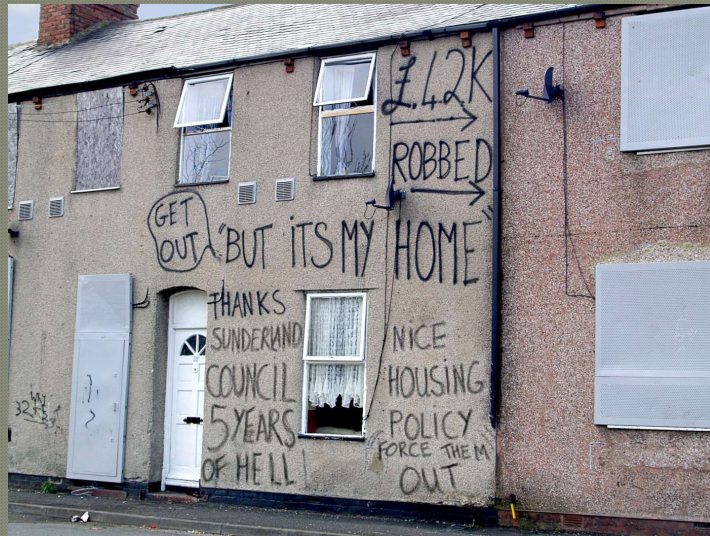 £42K
ROBBED
GET
OUT
"BUT iTS MY HOME"
THANKS
SUNDERLAND
COUNCIL
5 YEARS
OF HELL!
NICE
HOUSING
POLICY
"FORCE THEM"
OUT